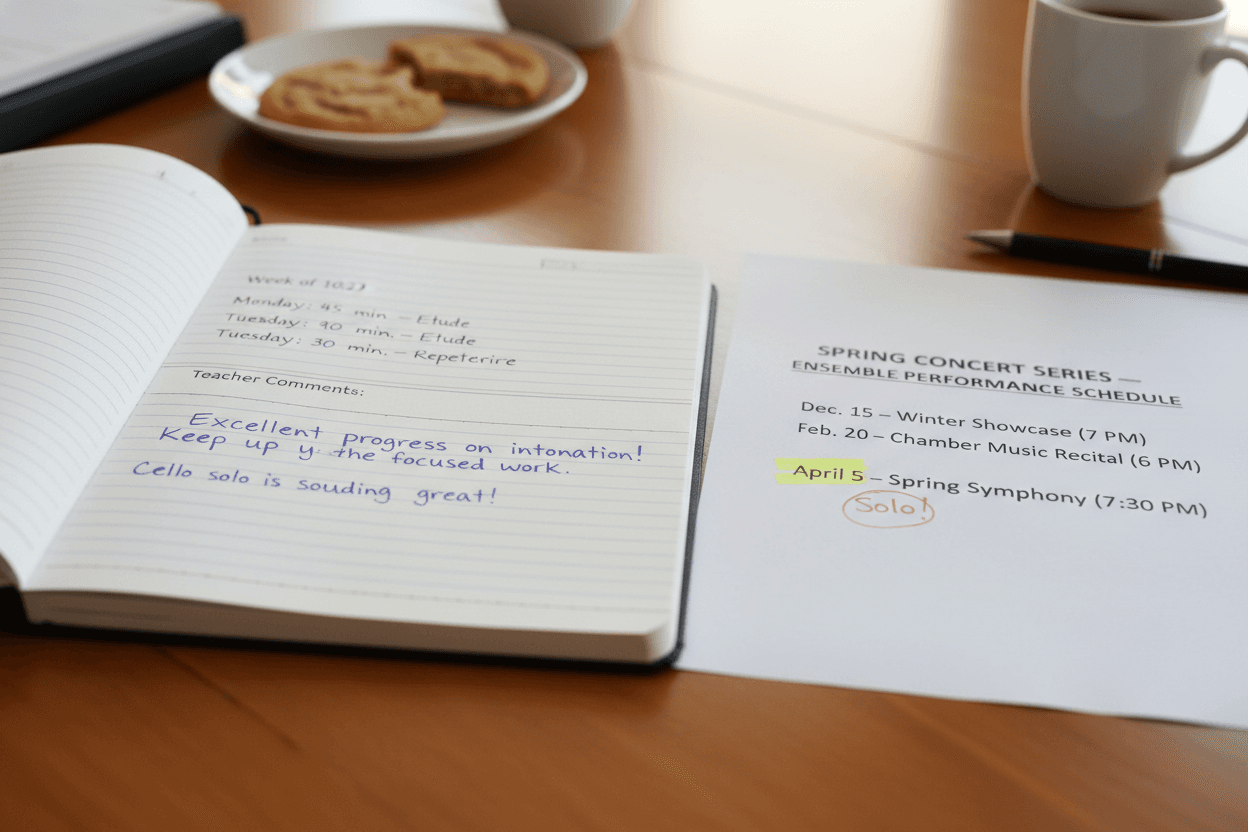 Week of 10.23
Monday: 45 min – Etude
Tuesday: 90 min. – Etude
Tuesday: 30 min. – Repeterire
Teacher Comments:
Excellent progress on intonation!
Keep up y. the focused work.
Cello solo is souding great!
SPRING CONCERT SERIES —
ENSEMBLE PERFORMANCE SCHEDULE
Dec. 15 – Winter Showcase (7 PM)
Feb. 20 – Chamber Music Recital (6 PM)
April 5 – Spring Symphony (7:30 PM)
Solo!